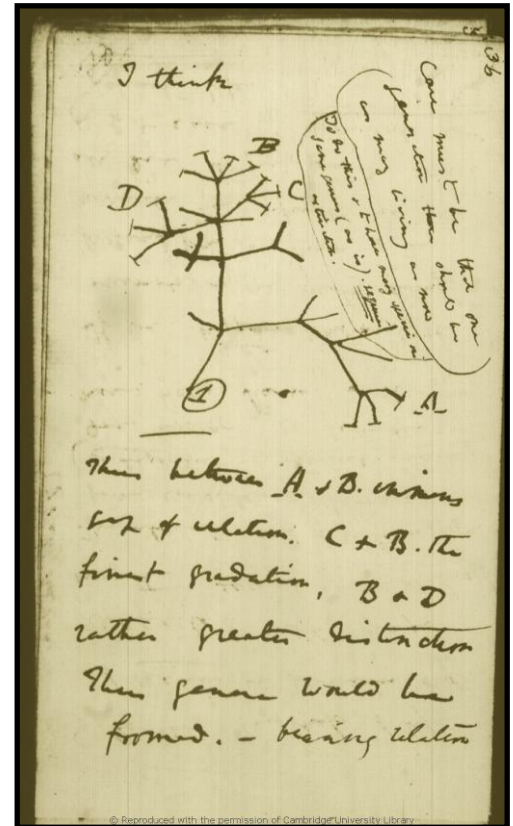 36
I think
Case must be that one
generation then should be
as many living as now
To do this & to have many species in
same genus (as is). requires
extinction.
B
C
D
1
A
Thus between A & B. immense
gap of relation. C & B. the
finest gradation, B & D
rather greater distinction
Thus genera would be
formed. — bearing relation
© Reproduced with the permission of Cambridge University Library